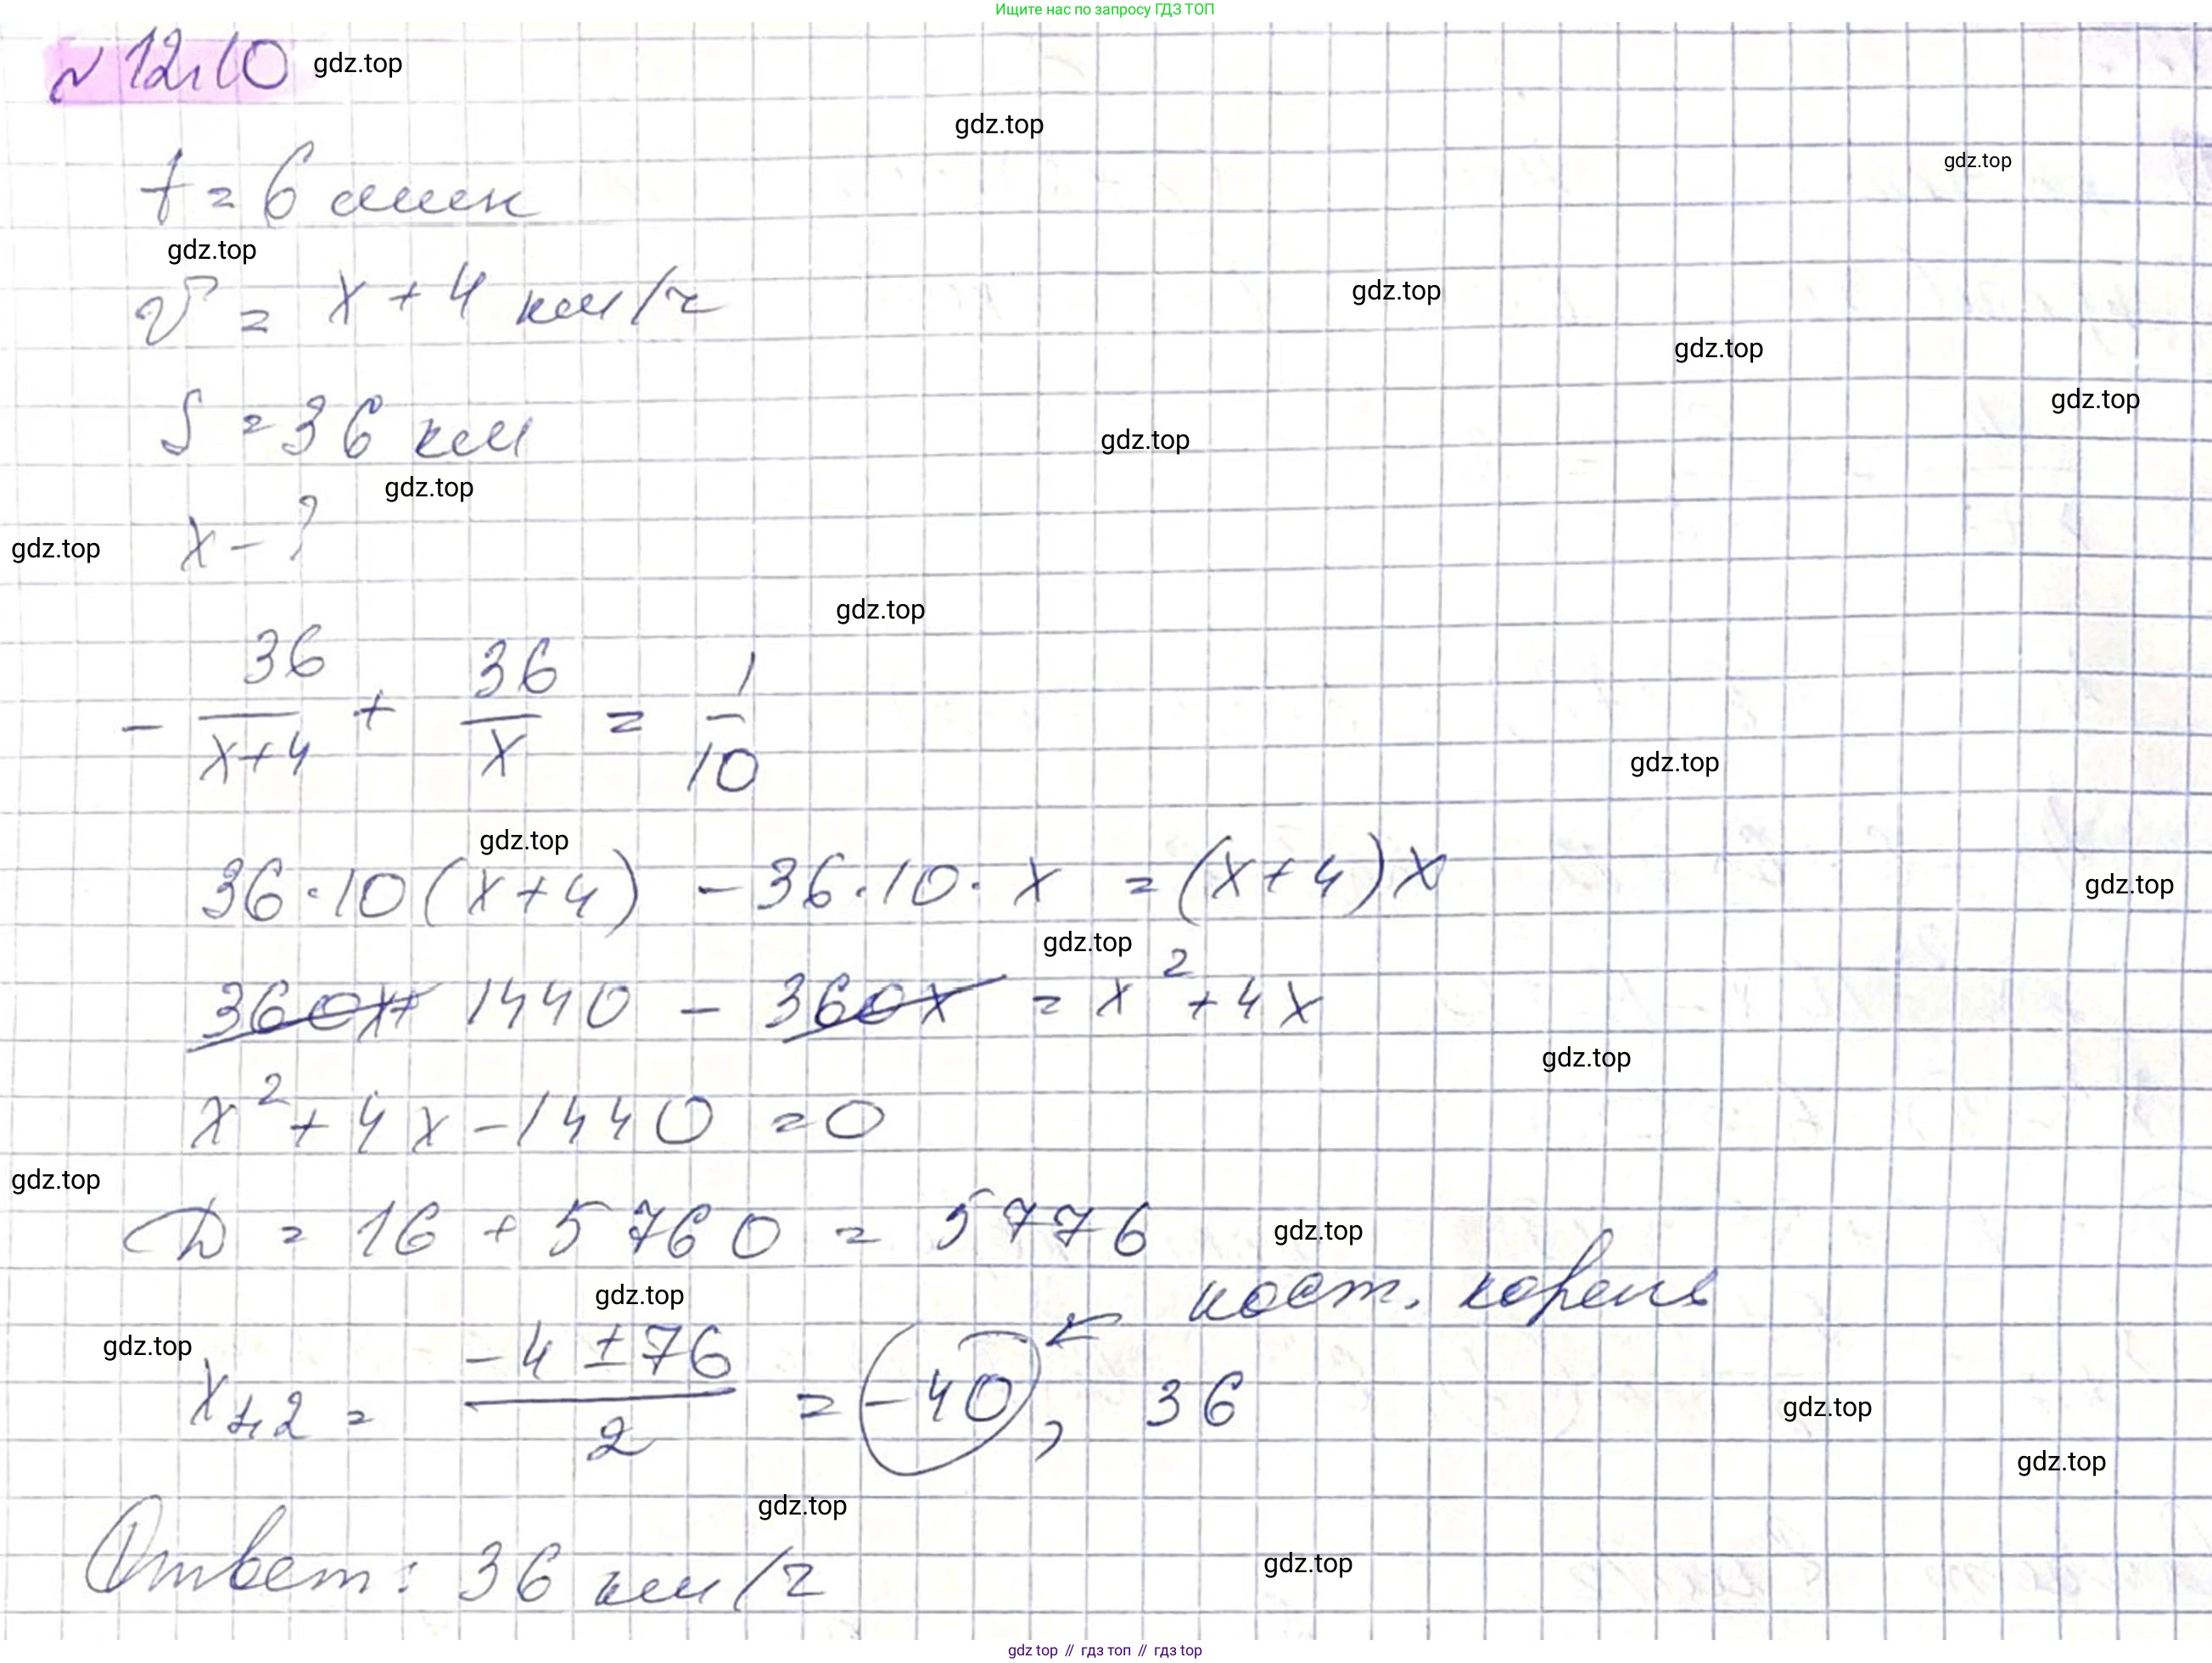 Ищите нас по запросу ГДЗ ТОП
№ 12.10 gdz.top
gdz.top
gdz.top
t = 6 мин
gdz.top
v = x + 4 км/ч
gdz.top
gdz.top
gdz.top
S = 36 км
gdz.top
gdz.top
x - ?
gdz.top
gdz.top
- 36/(x+4) + 36/x = 1/10
gdz.top
gdz.top
36·10(x+4) - 36·10·x = (x+4)x
gdz.top
gdz.top
360x+ 1440 - 360x = x² + 4x
gdz.top
x² + 4x - 1440 = 0
gdz.top
D = 16 + 5760 = 5776
gdz.top
gdz.top
пост. корень
gdz.top
x1,2 = (-4 ± 76)/2 = -40, 36
gdz.top
gdz.top
gdz.top
Ответ: 36 км/ч
gdz.top
gdz.top // гдз топ // гдз top